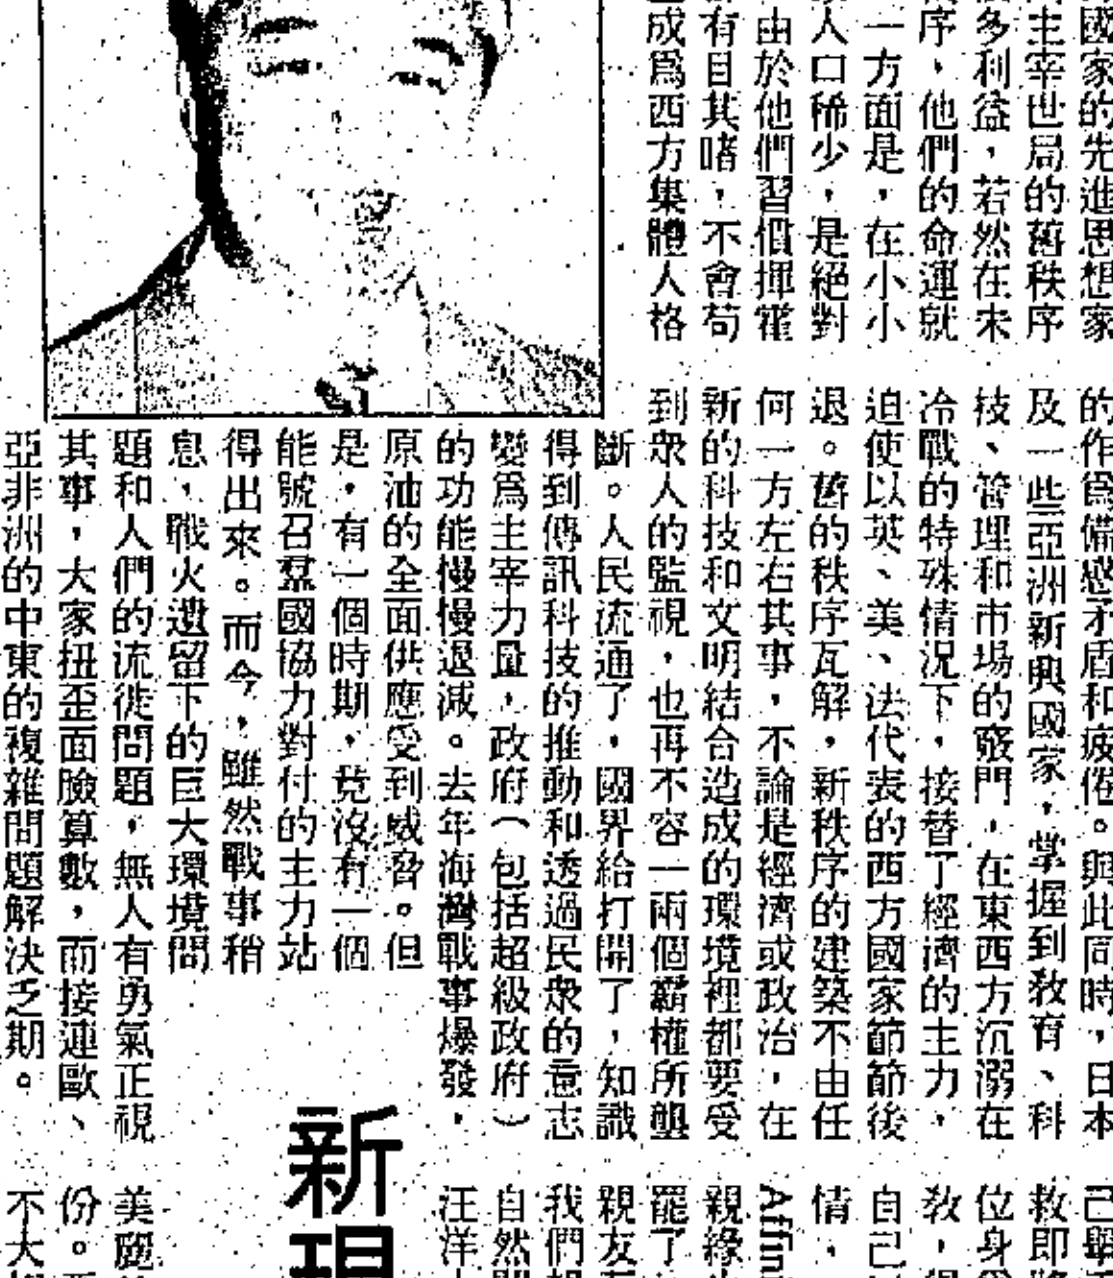 國家的先進思想家
主宰世局的舊秩序
多利益，若然在未
序，他們的命運就
一方面是，在小小
人口稀少，是絕對
由於他們習慣揮霍
有目其睹，不會苟
成爲西方集體人格
的作爲備感矛盾和疲倦。與此同時，日本
及一些亞洲新興國家，掌握到教育、科
技、管理和市場的竅門，在東西方沉溺在
冷戰的特殊情況下，接替了經濟的主力，
迫使以英、美、法代表的西方國家節節後
退。舊的秩序瓦解，新秩序的建築不由任
何一方左右其事，不論是經濟或政治，在
新的科技和文明結合造成的環境裡都要受
到衆人的監視，也再不容一兩個霸權所壟
斷。人民流通了，國界給打開了，知識
得到傳訊科技的推動和透過民衆的意志
變爲主宰力量，政府（包括超級政府）
的功能慢慢退減。去年海灣戰事爆發，
原油的全面供應受到威脅。但
是，有一個時期，竟沒有一個
能號召羣國協力對付的主力站
得出來。而今，雖然戰事稍
息，戰火遺留下的巨大環境問
題和人們的流徙問題，無人有勇氣正視
其事，大家扭歪面臉算數，而接連歐、
亞非洲的中東的複雜問題解決乏期。
己
救即
位身
教，
自己
情，
Affin
親緣
罷了
親友
我們
自然
汪洋
新現
美麗
份。
不大